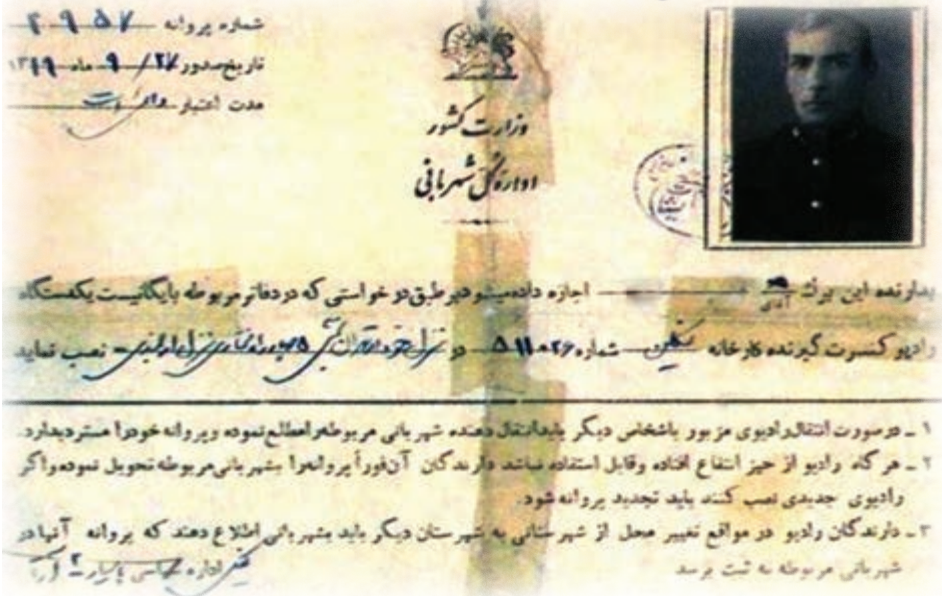 شماره پروانه ۲۹۵۷
تاریخ صدور ۲۷/ ۹ ماه ۱۳۱۹
مدت اعتبار
وزارت کشور
اداره کل شهربانی
بدارنده این برگ آقای اجازه داده میشود بر طبق درخواستی که در دفاتر مربوطه بایگانیست یکدستگاه
رادیو کنسرت گیرنده کارخانه شماره ۵۱۱۰۲۶ در نصب نماید
۱ - در صورت انتقال رادیوی مزبور باشخاص دیگر باید انتقال دهنده شهربانی مربوطه را مطلع نموده و پروانه خود را مسترد بدارد.
۲ - هر گاه رادیو از حیز انتفاع افتاده و قابل استفاده نباشد دارندگان آن فوراً پروانه را بشهربانی مربوطه تحویل نموده و اگر
رادیوی جدیدی نصب کنند باید تجدید پروانه شود.
۳ - دارندگان رادیو در مواقع تغییر محل از شهرستانی به شهرستان دیگر باید بشهربانی اطلاع دهند که پروانه آنها در
شهربانی مربوطه به ثبت برسد
اداره سیاسی